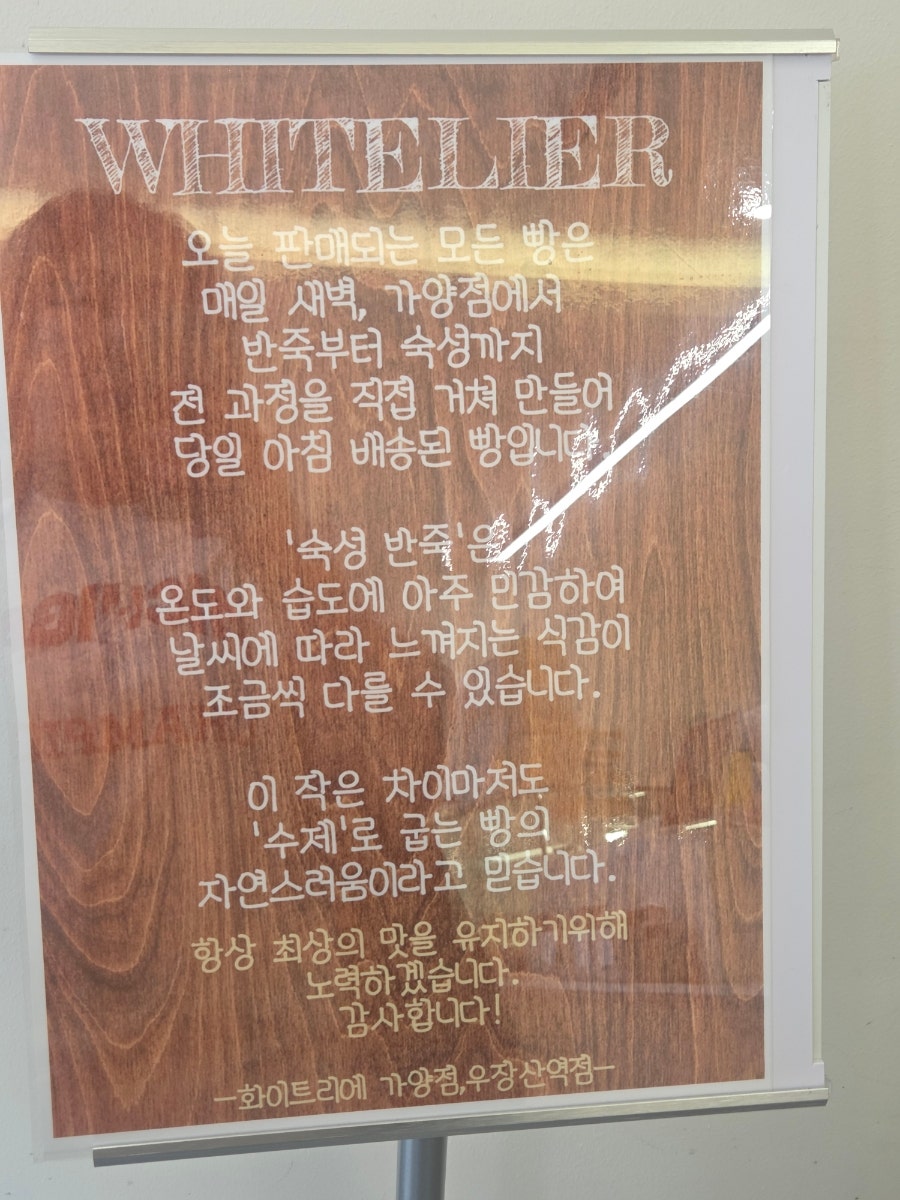 WHITELIER
오늘 판매되는 모든 빵은
매일 새벽, 가양점에서
반죽부터 숙성까지
전 과정을 직접 거쳐 만들어
당일 아침 배송된 빵입니다.
'숙성 반죽'은
온도와 습도에 아주 민감하여
날씨에 따라 느껴지는 식감이
조금씩 다를 수 있습니다.
이 작은 차이마저도
'수제'로 굽는 빵의
자연스러움이라고 믿습니다.
항상 최상의 맛을 유지하기위해
노력하겠습니다.
감사합니다!
-화이트리에 가양점,우장산역점-